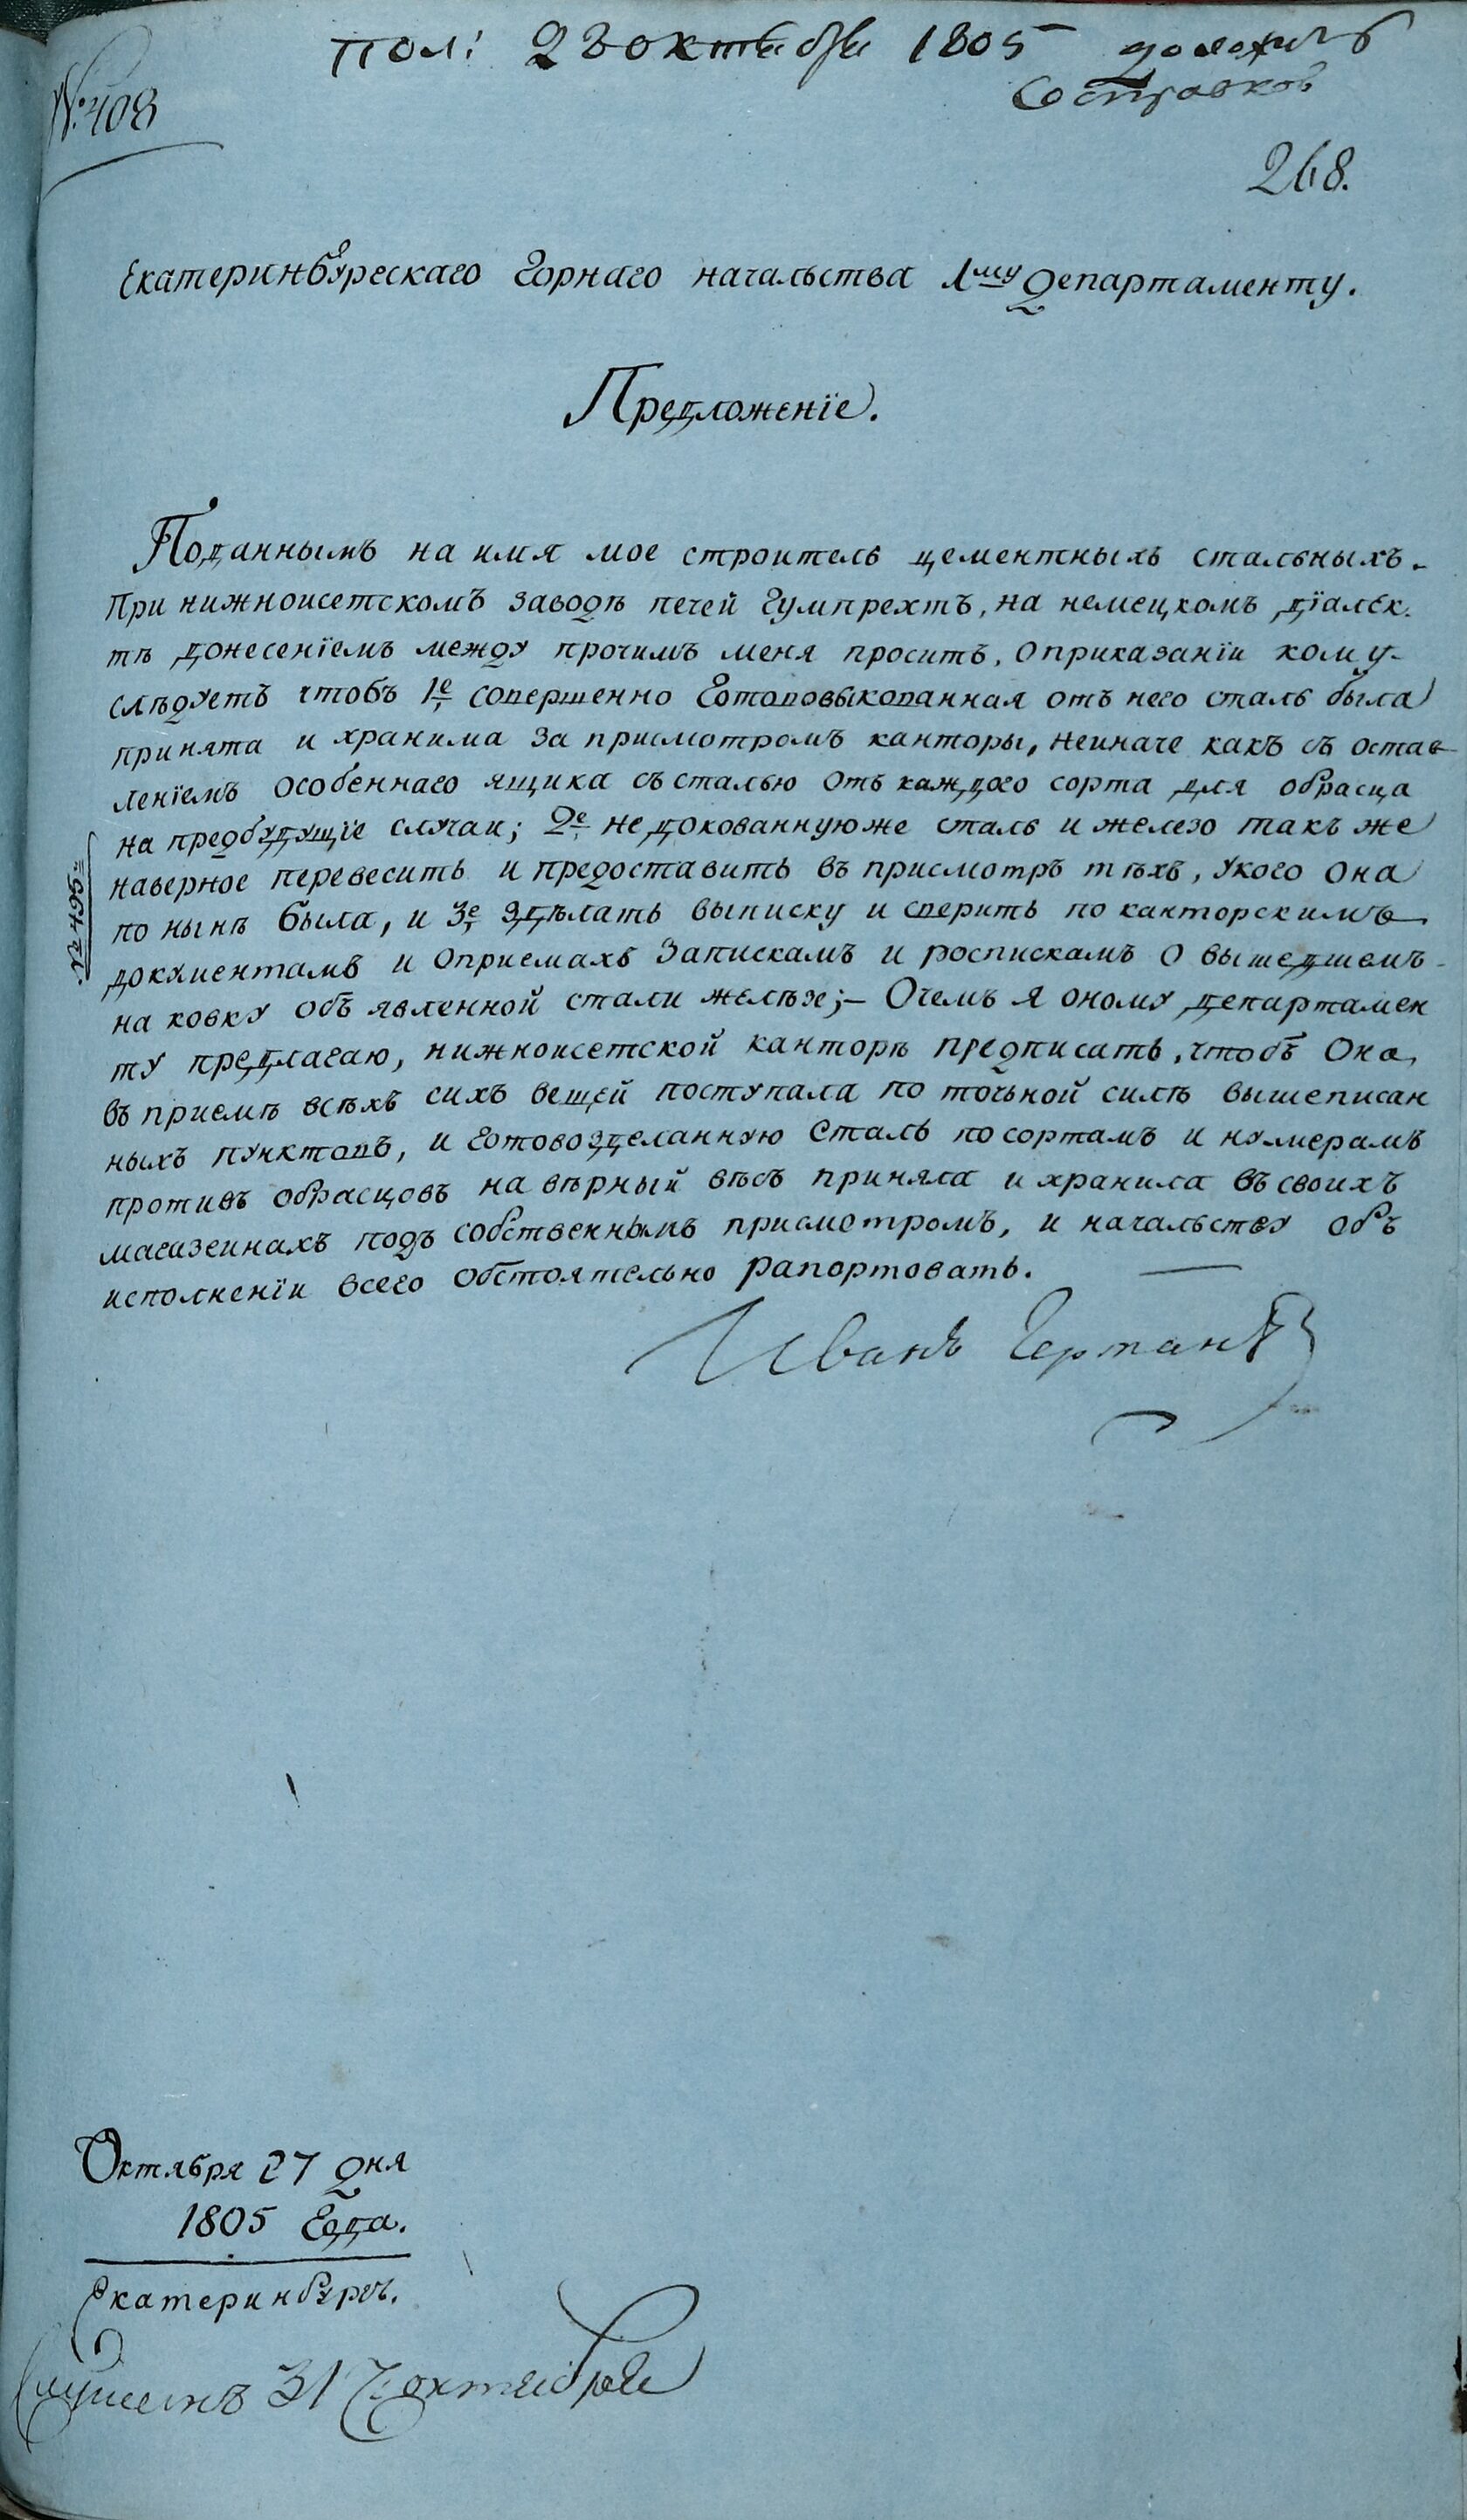 пол: 28 октября 1805 доложить
Со справкой
№ 408
268.
Екатеринбургскаго Горнаго начальства 1му Департаменту.
Предложенїе.
Поданнымъ на имя мое строитель цементныхъ стальныхъ
При нижноисетскомъ заводѣ печей Гумпрехтъ, на немецкомъ дїалек
тѣ донесенїемъ между прочимъ меня проситъ, о приказанїи кому
слѣдуетъ чтобъ 1е совершенно Готововыкованная отъ него сталь была
принята и хранима за присмотромъ канторы, неиначе какъ съ остав
ленїемъ особеннаго ящика съ сталью отъ каждого сорта для образца
на предбудущїе случаи; 2е не докованнуюже сталь и железо такъ же
наверное перевесить и предоставить въ присмотръ тѣхъ, у кого она
по нынѣ была, и 3е здѣлать выписку и сверить по канторскимъ
документамъ и о приемахъ запискамъ и роспискамъ о вышедшемъ
на ковку объявленной стали желѣзе; - О чемъ я оному департамен
ту предлагаю, нижноисетской канторѣ предписать, чтобъ Она
въ приемѣ всѣхъ сихъ вещей поступала по точьной силѣ вышеписан
ныхъ пунктовъ, и готовозделанную Сталь по сортамъ и нумерамъ
противъ образцовъ на вѣрный вѣсъ приняла и хранила въ своихъ
магазеинахъ подъ собственнымъ присмотромъ, и начальству объ
исполненїи всего обстоятельно рапортовать.
Иванъ Германъ
№ 495.
Октября 27 дня
1805 Года.
Екатеринбургъ.
Слушенъ 31 октября